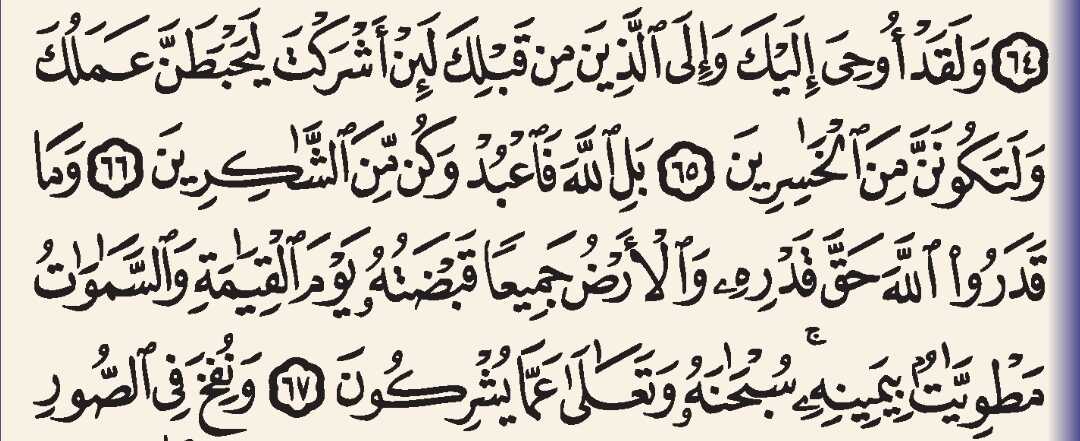 ٦٤ وَلَقَدۡ أُوحِيَ إِلَيۡكَ وَإِلَى ٱلَّذِينَ مِن قَبۡلِكَ لَئِنۡ أَشۡرَكۡتَ لَيَحۡبَطَنَّ عَمَلُكَ
وَلَتَكُونَنَّ مِنَ ٱلۡخَٰسِرِينَ ٦٥ بَلِ ٱللَّهَ فَٱعۡبُدۡ وَكُن مِّنَ ٱلشَّٰكِرِينَ ٦٦ وَمَا
قَدَرُواْ ٱللَّهَ حَقَّ قَدۡرِهِۦ وَٱلۡأَرۡضُ جَمِيعٗا قَبۡضَتُهُۥ يَوۡمَ ٱلۡقِيَٰمَةِ وَٱلسَّمَٰوَٰتُ
مَطۡوِيَّٰتُۢ بِيَمِينِهِۦۚ سُبۡحَٰنَهُۥ وَتَعَٰلَىٰ عَمَّا يُشۡرِكُونَ ٦٧ وَنُفِخَ فِي ٱلصُّورِ